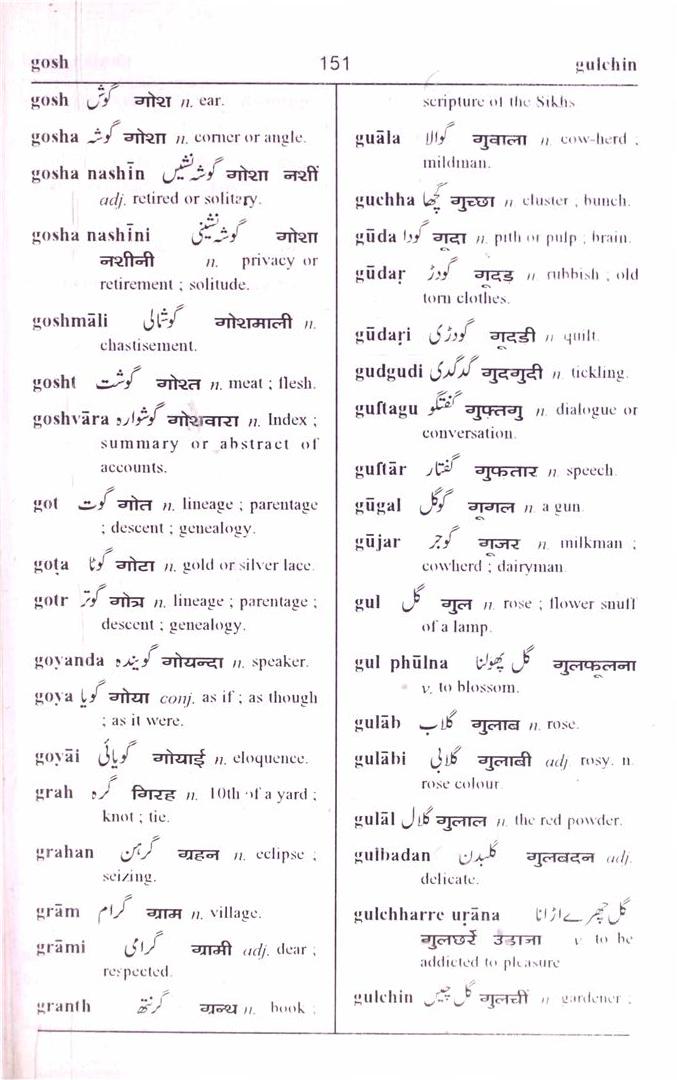 gosh 151 gulchin
gosh گوش गोश n. ear.
gosha گوشہ गोशा n. corner or angle.
gosha nashīn گوشہ نشیں गोशा नशीं
adj. retired or solitary.
gosha nashīni گوشہ نشینی गोशा
नशीनी n. privacy or
retirement ; solitude.
goshmāli گوشمالی गोशमाली n.
chastisement.
gosht گوشت गोश्त n. meat ; flesh.
goshvāra گوشوارہ गोशवारा n. Index ;
summary or abstract of
accounts.
got گوت गोत n. lineage ; parentage
; descent ; genealogy.
goṭa گوٹا गोटा n. gold or silver lace.
gotr گوتر गोत्र n. lineage ; parentage ;
descent ; genealogy.
goyanda گویندہ गोयन्दा n. speaker.
goya گویا गोया conj. as if ; as though
; as it were.
goyāi گویائی गोयाई n. eloquence.
grah گرہ गिरह n. 10th of a yard ;
knot ; tie.
grahan گرہن ग्रहन n. eclipse ;
seizing.
grām گرام ग्राम n. village.
grāmi گرامی ग्रामी adj. dear ;
respected.
granth گرنتھ ग्रन्थ n. book ;
scripture of the Sikhs
guāla گوالا गुवाला n. cow-herd ;
mildman.
guchha گچھا गुच्छा n. cluster , bunch.
gūda گودا गूदा n. pith or pulp ; brain.
gūdaṛ گودڑ गूदड़ n. rubbish ; old
torn clothes.
gūdaṛi گودڑی गूदडी n quilt.
gudgudi گدگدی गुदगुदी n. tickling.
guftagu گفتگو गुफ्तगु n. dialogue or
conversation.
guftār گفتار गुफतार n. speech.
gūgal گوگل गूगल n. a gun.
gūjar گوجر गूजर n. milkman ;
cowherd ; dairyman.
gul گل गुल n. rose ; flower snuff
of a lamp.
gul phūlna گل پھولنا गुलफूलना
v. to blossom.
gulāb گلاب गुलाब n. rose.
gulābi گلابی गुलाबी adj. rosy. n.
rose colour.
gulāl گلال गुलाल n. the red powder.
gulbadan گلبدن गुलबदन adj.
delicate.
gulchharre uṛāna گل چھرے اڑانا
गुलछर्रे उडाना v. to be
addicted to pleasure
gulchin گل چیں गुलचीं n gardener ;